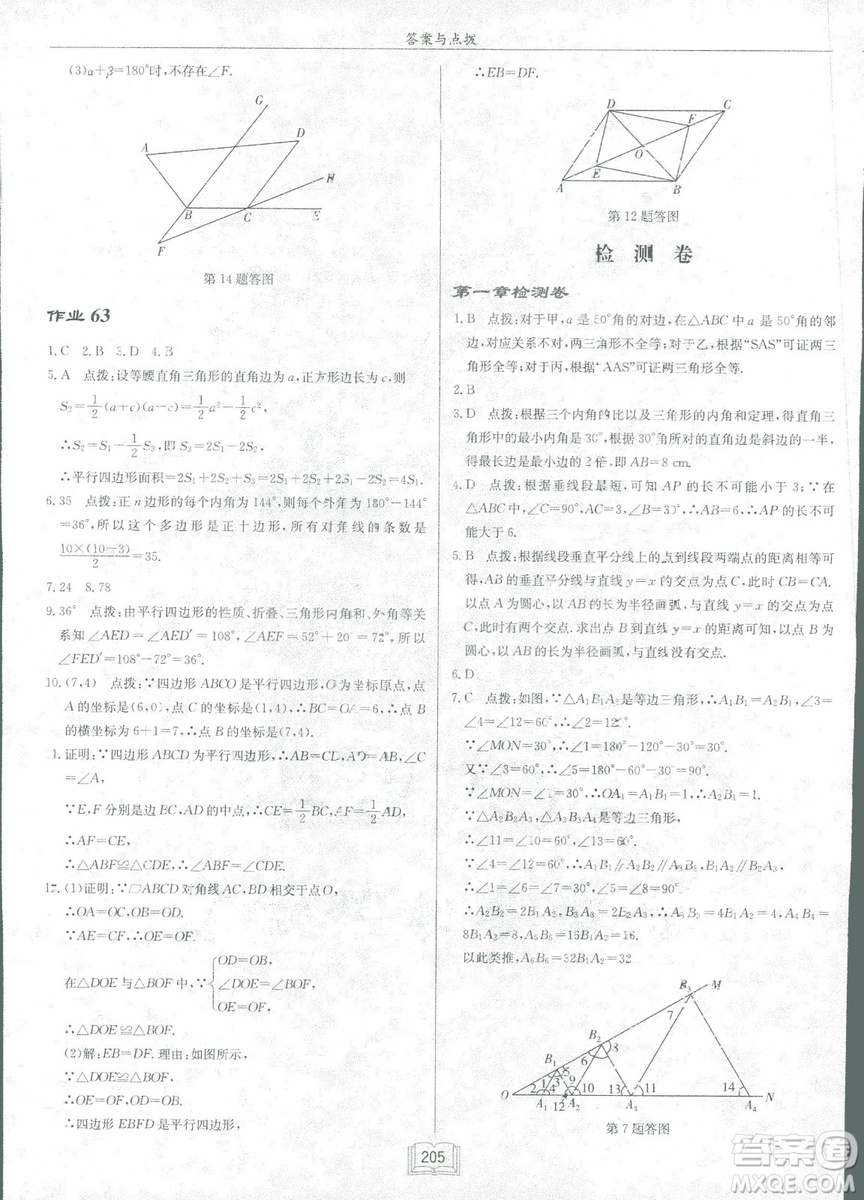 答案与点拨
(3)α+β=180°时,不存在∠F.
G
A
D
H
B
C
E
F
第14题答图
作业 63
1.C 2.B 3.D 4.B
5.A 点拨:设等腰直角三角形的直角边为a,正方形边长为c,则
S₂=1/2(a+c)(a−c)=1/2a²−1/2c²,
∴S₂=S₁−1/2S₃,即S₂=S₁−1/2S₃,
∴平行四边形面积=2S₁+2S₂+S₃=2S₁+2S₁=4S₁.
6.35 点拨:正n边形的每个内角为144°,则每个外角为180°−144°
=36°,所以这个多边形是正十边形,所有对角线的条数是
10×(10−3)/2=35.
7.24 8.78
9.36° 点拨:由平行四边形的性质、折叠、三角形内角和、外角等关
系知∠AED=∠AED′=108°,∠AEF=52°+20°=72°,所以
∠FED′=108°−72°=36°.
10.(7,4) 点拨:∵四边形ABCO是平行四边形,O为坐标原点,点
A的坐标是(6,0),点C的坐标是(1,4),∴BC=OA=6,∴点B
的横坐标为6+1=7,∴点B的坐标是(7,4).
1.证明:∵四边形ABCD为平行四边形,∴AB=CD,AD=CB,∠C
=∠A,
∵E,F分别是边BC,AD的中点,∴CE=1/2BC,AF=1/2AD,
∴AF=CE,
∴△ABF≌△CDE.
12.(1)证明:∵□ABCD对角线AC,BD相交于点O,
∴OA=OC,OB=OD.
∵AE=CF,∴OE=OF.
在△DOE与△BOF中,∵{OD=OB,
∠DOE=∠BOF,
OE=OF,
∴△DOE≌△BOF.
(2)解:EB=DF.理由:如图所示,
∵△DOE≌△BOF,
∴OE=OF,OD=OB,
∴四边形EBFD是平行四边形,
∴EB=DF.
D
C
F
O
E
A
B
第12题答图
检测卷
第一章检测卷
1.B 点拨:对于甲,a是50°角的对边,在△ABC中a是50°角的邻
边,对应关系不对,两三角形不全等;对于乙,根据“SAS”可证两三
角形全等;对于丙,根据“AAS”可证两三角形全等.
2.B
3.D 点拨:根据三个内角的比以及三角形的内角和定理,得直角三
角形中的最小内角是30°,根据30°角所对的直角边是斜边的一半,
得斜边AB=8 cm.
4.D 点拨:根据垂线段最短,可知AP的长不可能小于3;∵△ABC中,∠C=90°,AC=3,∠B=30°,∴AB=6,∴AP的长不可
能大于6.
5.B 点拨:根据线段垂直平分线上的点到线段两端点的距离相等,可得AB的垂直平分线与直线y=x的交点为点C,此时CB=CA.
以点A为圆心,以AB的长为半径画弧,与直线y=x的交点为点
C,此时有两个交点.求出点B到直线y=x的距离可知以点B为
圆心,以AB的长为半径画弧,与直线无交点.
6.D
7.C 点拨:如图,∵△A₁B₁A₂是等边三角形,∴A₁B₁=A₂B₁,∠3=
∠4=∠12=60°,∴∠2=120°.
∵∠MON=30°,∴∠1=180°−120°−30°=30°.
又∵∠3=60°,∴∠5=180°−60°−30°=90°.
∵∠MON=∠1=30°,∴OA₁=A₁B₁=1,∴A₂B₁=1.
∵△A₂B₂A₃,△A₃B₃A₄是等边三角形,
∴∠11=∠10=60°,∠13=60°.
∵∠4=∠12=60°,∴A₁B₁∥A₂B₂∥A₃B₃,B₁A₂∥B₂A₃,
∴∠1=∠6=∠7=30°,∠5=∠8=90°,
∴A₂B₂=2B₁A₂,B₃A₃=2B₂A₃,∴A₃B₃=4B₁A₂=4,A₄B₄=
8B₁A₂=8,A₅B₅=16B₁A₂=16.
以此类推,A₆B₆=32B₁A₂=32
B₃
M
7
B₂
8
6
B₁
5
1
3
9
O
2
4
10
11
14
A₁
12
A₂
A₃
A₄
N
第7题答图
205
答案圈
MXQE.COM